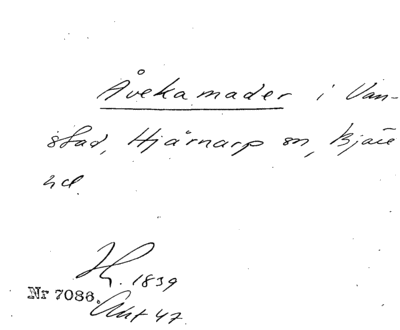 Åvekamader i Van-
stad, Hjärnarp sn, Bjäre
hd.
H. 1839
Nr 7086. Akt 47